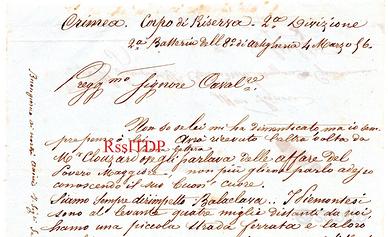 Crimea. Corpo di Riserva. 2a. Divizione
2a Batteria dell 8o di artiglieria 4 Marzo 56.
Pregmo Signore Caval re.
Non so se lei mi ha dimenticato, ma io sem
pre penso a lei. Avrà ricevuto l'altra volta da
RssITDP
lettera
Ma Clouzard ove gli parlava delle affare del
povero Maggiore, non più gliene parlo adesso
conoscendo il suo buon cuore.
Siamo sempre dirimpetto Balaclava.. I Piemontesi
sono al levante quatre miglie distanti da noi,
hanno una piccola strada ferrata e la loro